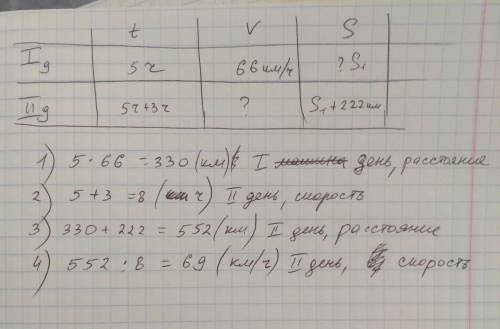 t V S
I д 5ч 66 км/ч ? S₁
II д 5ч+3ч ? S₁+222км
1) 5·66 =330 (км) I день, расстояние
2) 5+3 =8 (ч) II день, скорость
3) 330+222 = 552(км) II день, расстояние
4) 552:8 = 69 (км/ч) II день, скорость